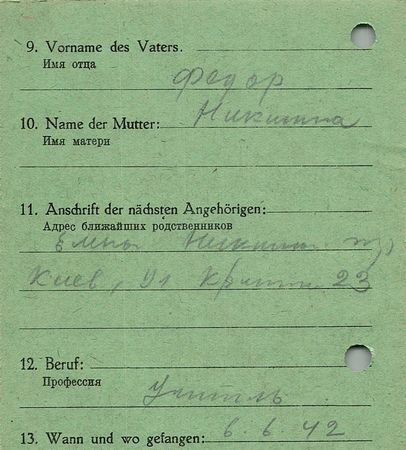 9. Vorname des Vaters.
Имя отца
Федор
10. Name der Mutter: Никитина
Имя матери
11. Anschrift der nächsten Angehörigen:
Адрес ближайших родственников
Киев, ул 23
12. Beruf:
Профессия
13. Wann und wo gefangen: 6.6.42